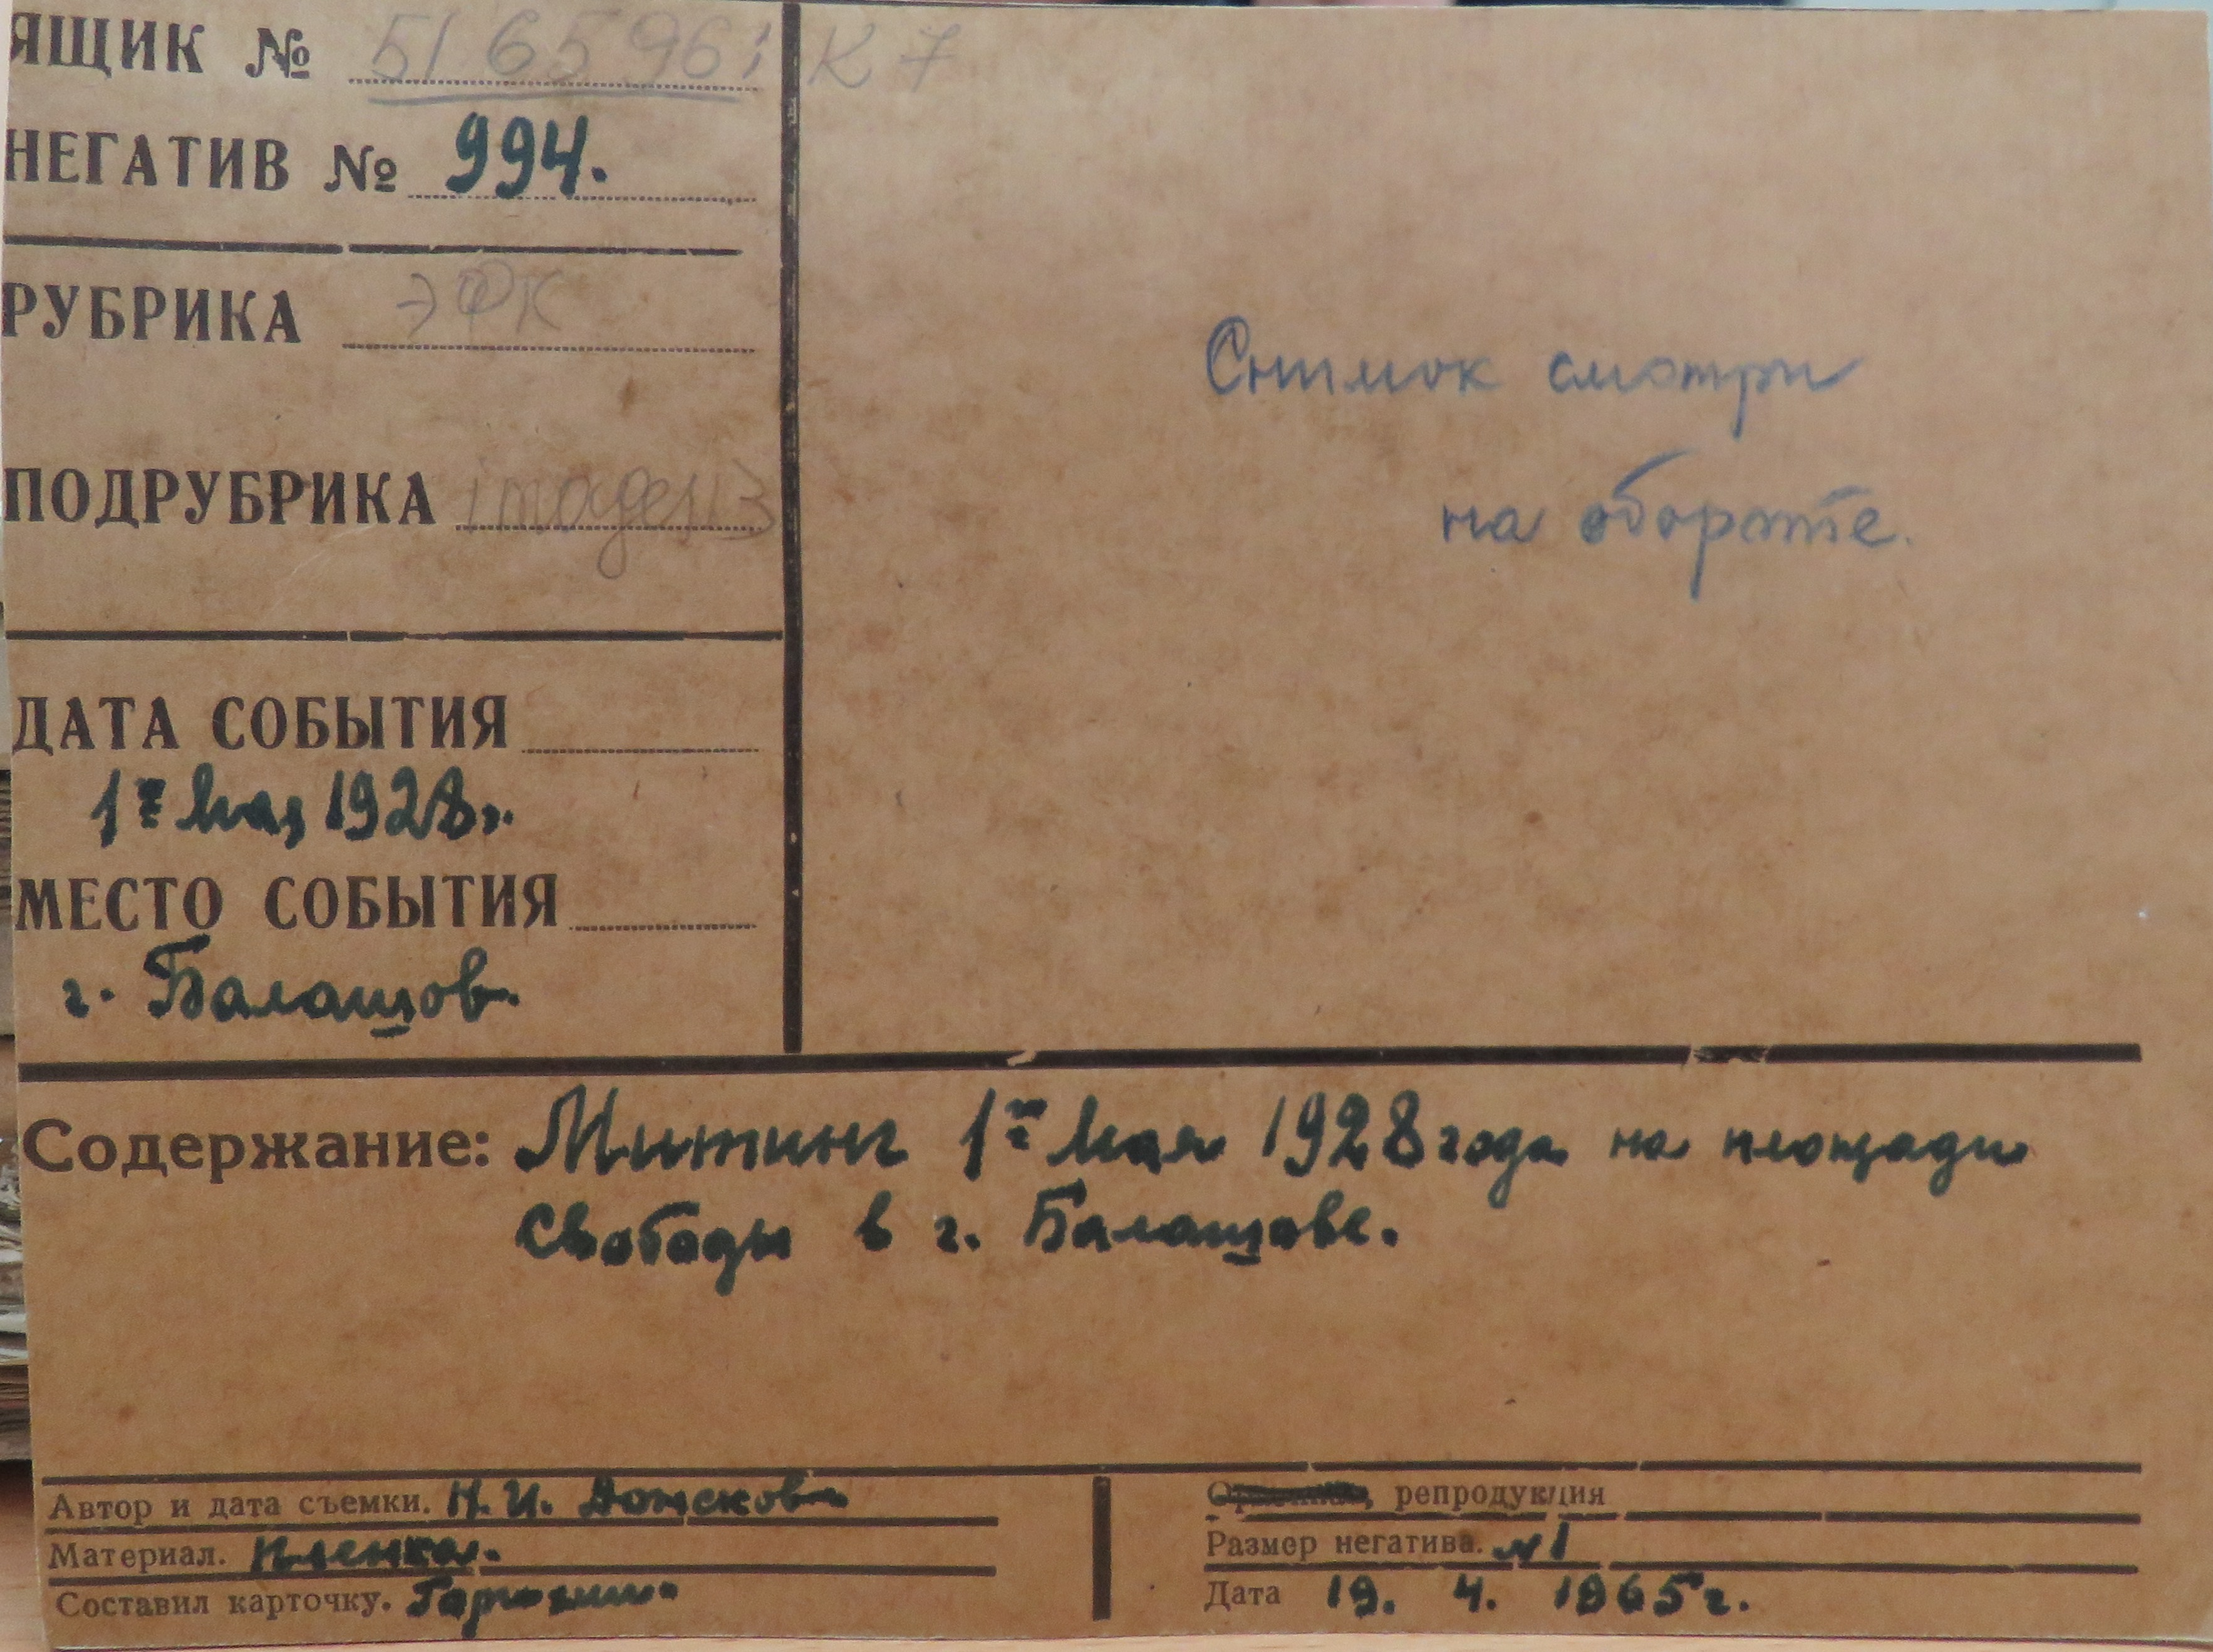 ЯЩИК № 5165961 К 7
НЕГАТИВ № 994.
РУБРИКА ЭФК
ПОДРУБРИКА
Снимок смотри
на обороте.
ДАТА СОБЫТИЯ
1го Мая 1928 г.
МЕСТО СОБЫТИЯ
г. Балашов.
Содержание: Митинг 1го Мая 1928 года на площади
Свободы в г. Балашове.
Автор и дата съемки. Н. И.
Материал. Пленка.
Составил карточку.
репродукция
Размер негатива. №1
Дата 19. 4. 1965 г.